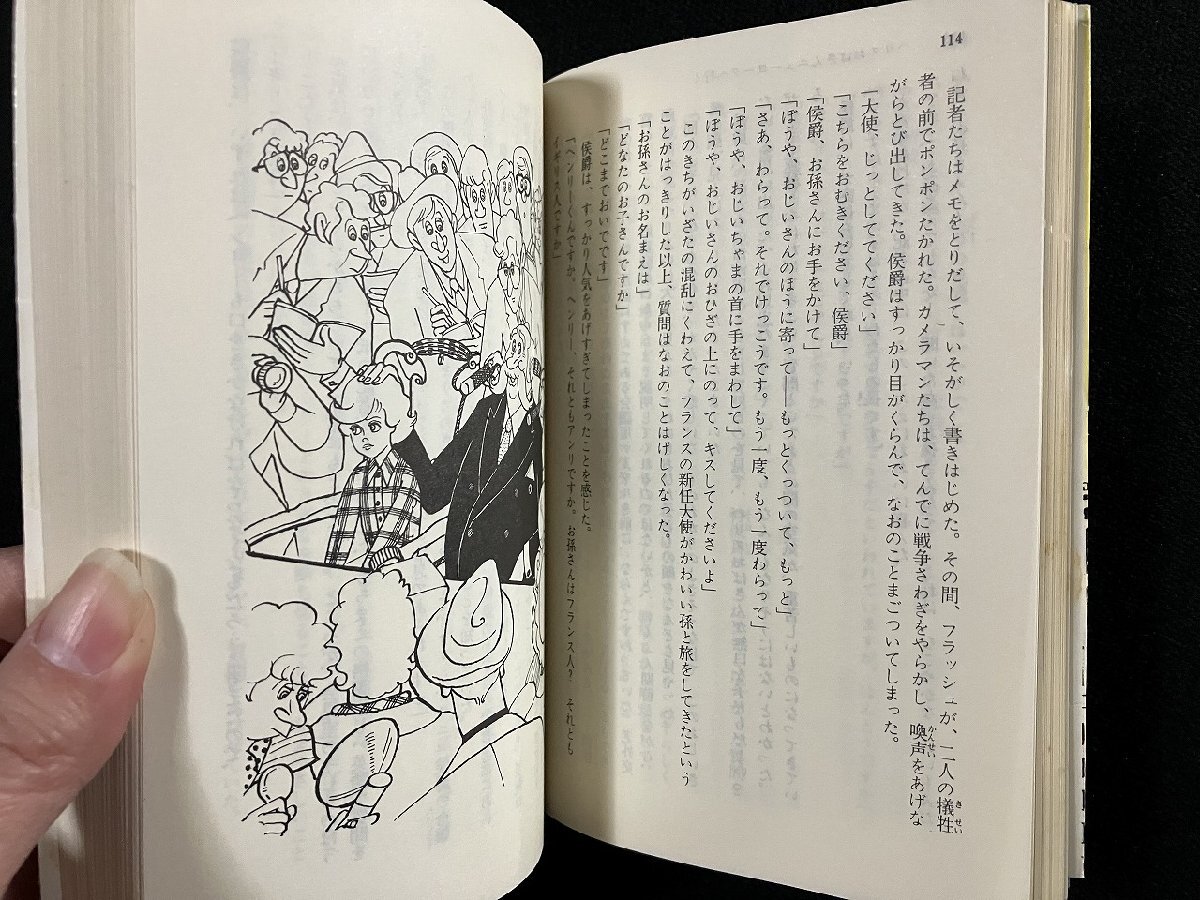 114
記者たちはメモをとりだして、いそがしく書きはじめた。その間、フラッシュが、二人の犠牲
者の前でポンポンたかれた。カメラマンたちは、てんでに戦争さわぎをやらかし、喚声をあげな
がらとび出してきた。侯爵はすっかり目がくらんで、なおのことまごついてしまった。
「大使、じっとしててください」
「こちらをおむきください、侯爵」
「侯爵、お孫さんにお手をかけて」
「ぼうや、おじいさんのほうに寄って――もっとくっついて、もっと」
「さあ、わらって。それでけっこうです。もう一度、もう一度わらって」
「ぼうや、おじいちゃまの首に手をまわして」
「ぼうや、おじいさんのおひざの上にのって、キスしてくださいよ」
このきちがいざたの混乱にくわえて、フランスの新任大使がかわいい孫と旅をしてきたという
ことがはっきりした以上、質問はなおのことはげしくなった。
「お孫さんのお名まえは」
「どなたのお子さんですか」
「どこまでおいでです」
侯爵は、すっかり人気をあげすぎてしまったことを感じた。
「ヘンリーくんですか。ヘンリー、それともアンリですか。お孫さんはフランス人？ それとも
イギリス人ですか」